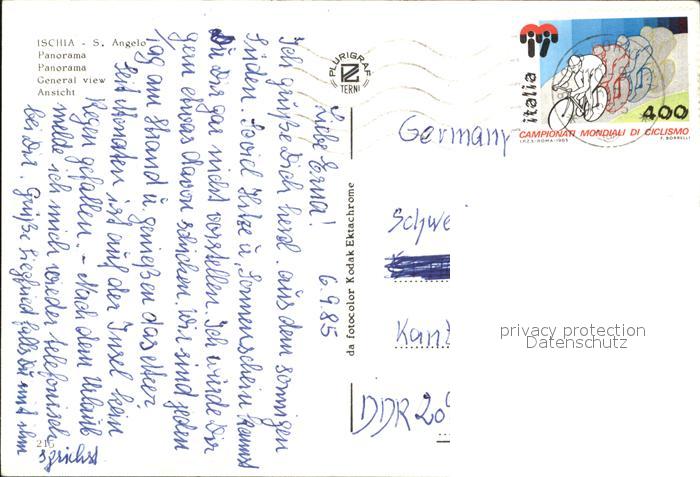 ISCHIA - S. Angelo
Panorama
Panorama
General view
Ansicht
PLURIGRAF
TERNI
da fotocolor Kodak Ektachrome
216
6.9.85
Liebe Erna!
Ich grüße Dich herzl. aus dem sonnigen
Süden. Soviel Hitze u. Sonnenschein kannst
Du Dir gar nicht vorstellen. Ich würde Dir
gern etwas davon schicken. Wir sind jeden
Tag am Strand u. genießen das Meer
Seit Monaten ist auf der Insel kein
Regen gefallen. - Nach dem Urlaub
melde ich mich wieder telefonisch
bei Dir. Grüße Siegfried falls Du mit ihm
sprichst.
italia
400
CAMPIONATI MONDIALI DI CICLISMO
I.P.Z.S.-ROMA-1985
F. BORRELLI
Germany
Schwei
Kant
DDR 20
privacy protection
Datenschutz